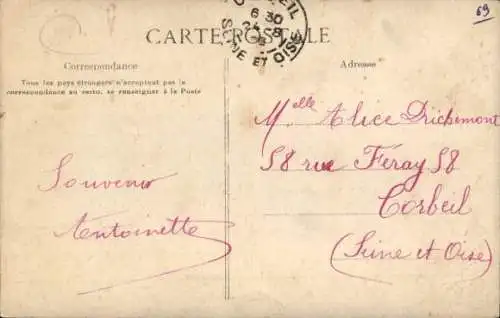 69
CARTE POSTALE
EIL
6 30
24 - 8
SEINE ET OISE
Correspondance
Tous les pays étrangers n'acceptant pas la
correspondance au verso, se renseigner à la Poste
Souvenir
Antoinette
Adresse
Melle Alice Drichemont
58 rue Féray 58
Corbeil
(Seine et Oise)